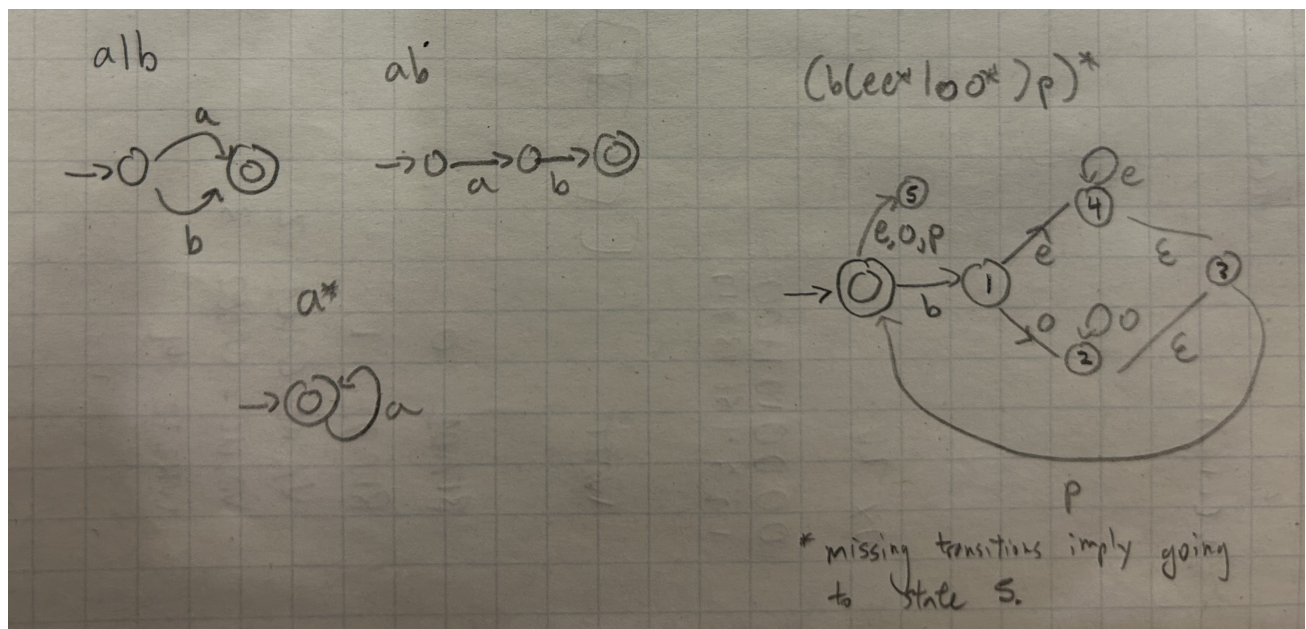 a|b
ab
(b(ee*|oo*)p)*
a
b
a
b
a*
a
5
e,o,p
b
1
e
4
e
ε
3
o
2
o
ε
p
* missing transitions imply going
to state 5.